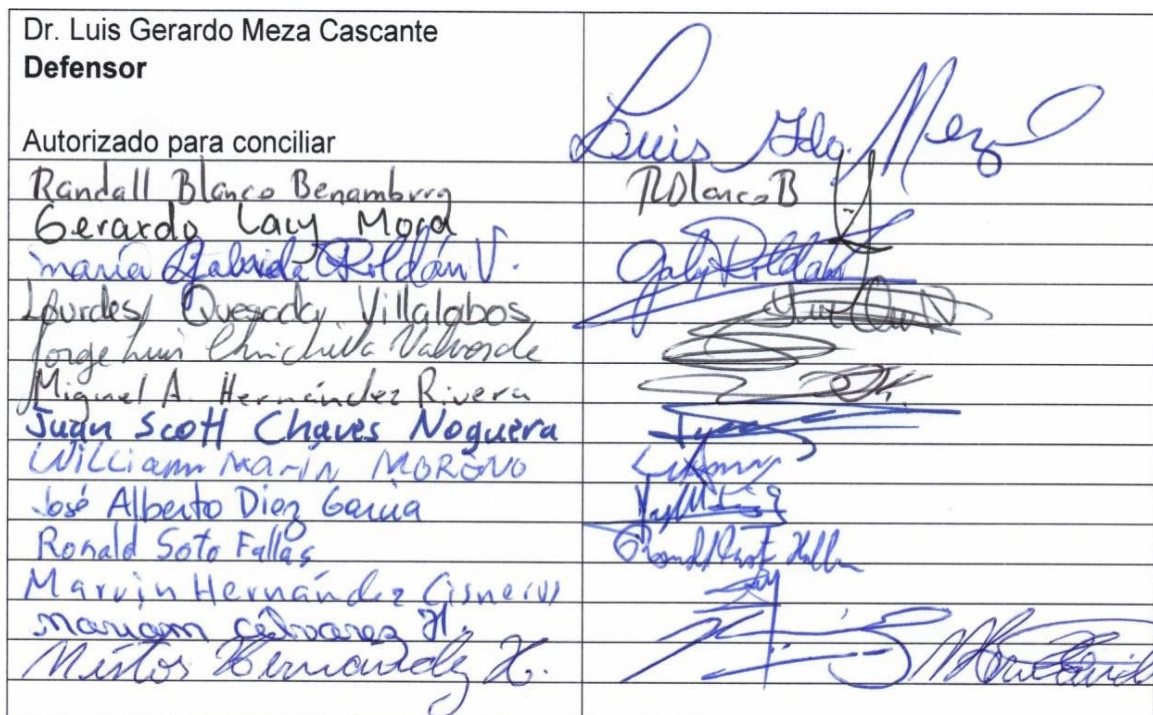 Dr. Luis Gerardo Meza Cascante
Defensor
Autorizado para conciliar
Luis Gdo. Meza
Randall Blanco Benamburg
RBlancoB
Gerardo Lacy Mora
María Gabriela Roldán V.
Gaby Roldán
Lourdes Quesada Villalobos
Jorge Luis Chinchilla Valverde
Miguel A. Hernández Rivera
Juan Scott Chaves Noguera
William Marín MORENO
José Alberto Díaz García
Ronald Soto Fallas
Marvin Hernández Cisneros
Mariam Álvarez H.
Néstor Hernández H.